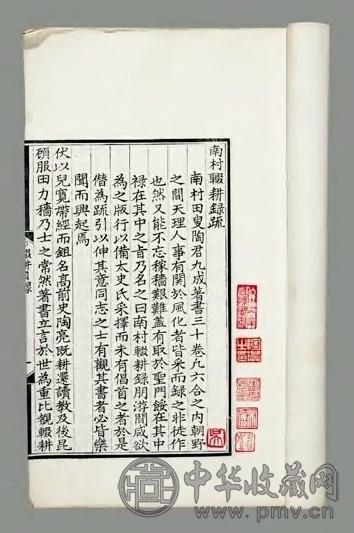 南村輟耕錄疏
南村田叟陶君九成著書三十卷凡六合之内朝野
之間天理人事有關於風化者皆采而録之非徒作
也然又能不忘稼穡艱難蓋有取於聖門餒在其中
禄在其中之音乃名之曰南村輟耕錄朋游間咸欲
為之版行以備太史氏采擇而未有倡首之者於是
僭為疏引以伸其意同志之士有觀其書者必皆樂
聞而興起焉
伏以兒寬帶經而鉏名高前史陶亮既耕還讀教及後昆
碩服田力穡乃士之常然著書立言於世為重比覩輟耕
中华收藏网
www.pmv.cn